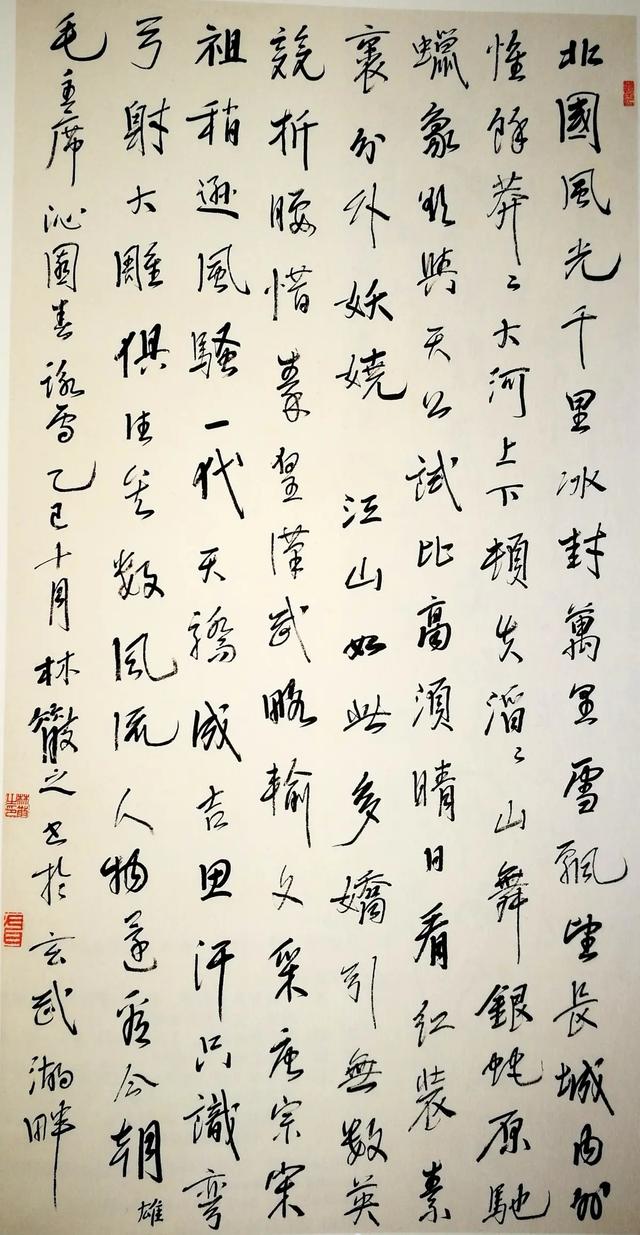 北國風光千里冰封萬里雪飄望長城内外
惟餘莽〻大河上下頓失滔〻山舞銀蛇原馳
蠟象欲與天公試比高須晴日看紅裝素
裹分外妖嬈 江山如此多嬌引無數英
競折腰惜秦皇漢武略輸文采唐宗宋
祖稍遜風騷一代天驕成吉思汗只識彎
弓射大雕俱往矣數風流人物還看今朝 雄
毛主席沁園春詠雪乙巳十月林散之書於玄武湖畔